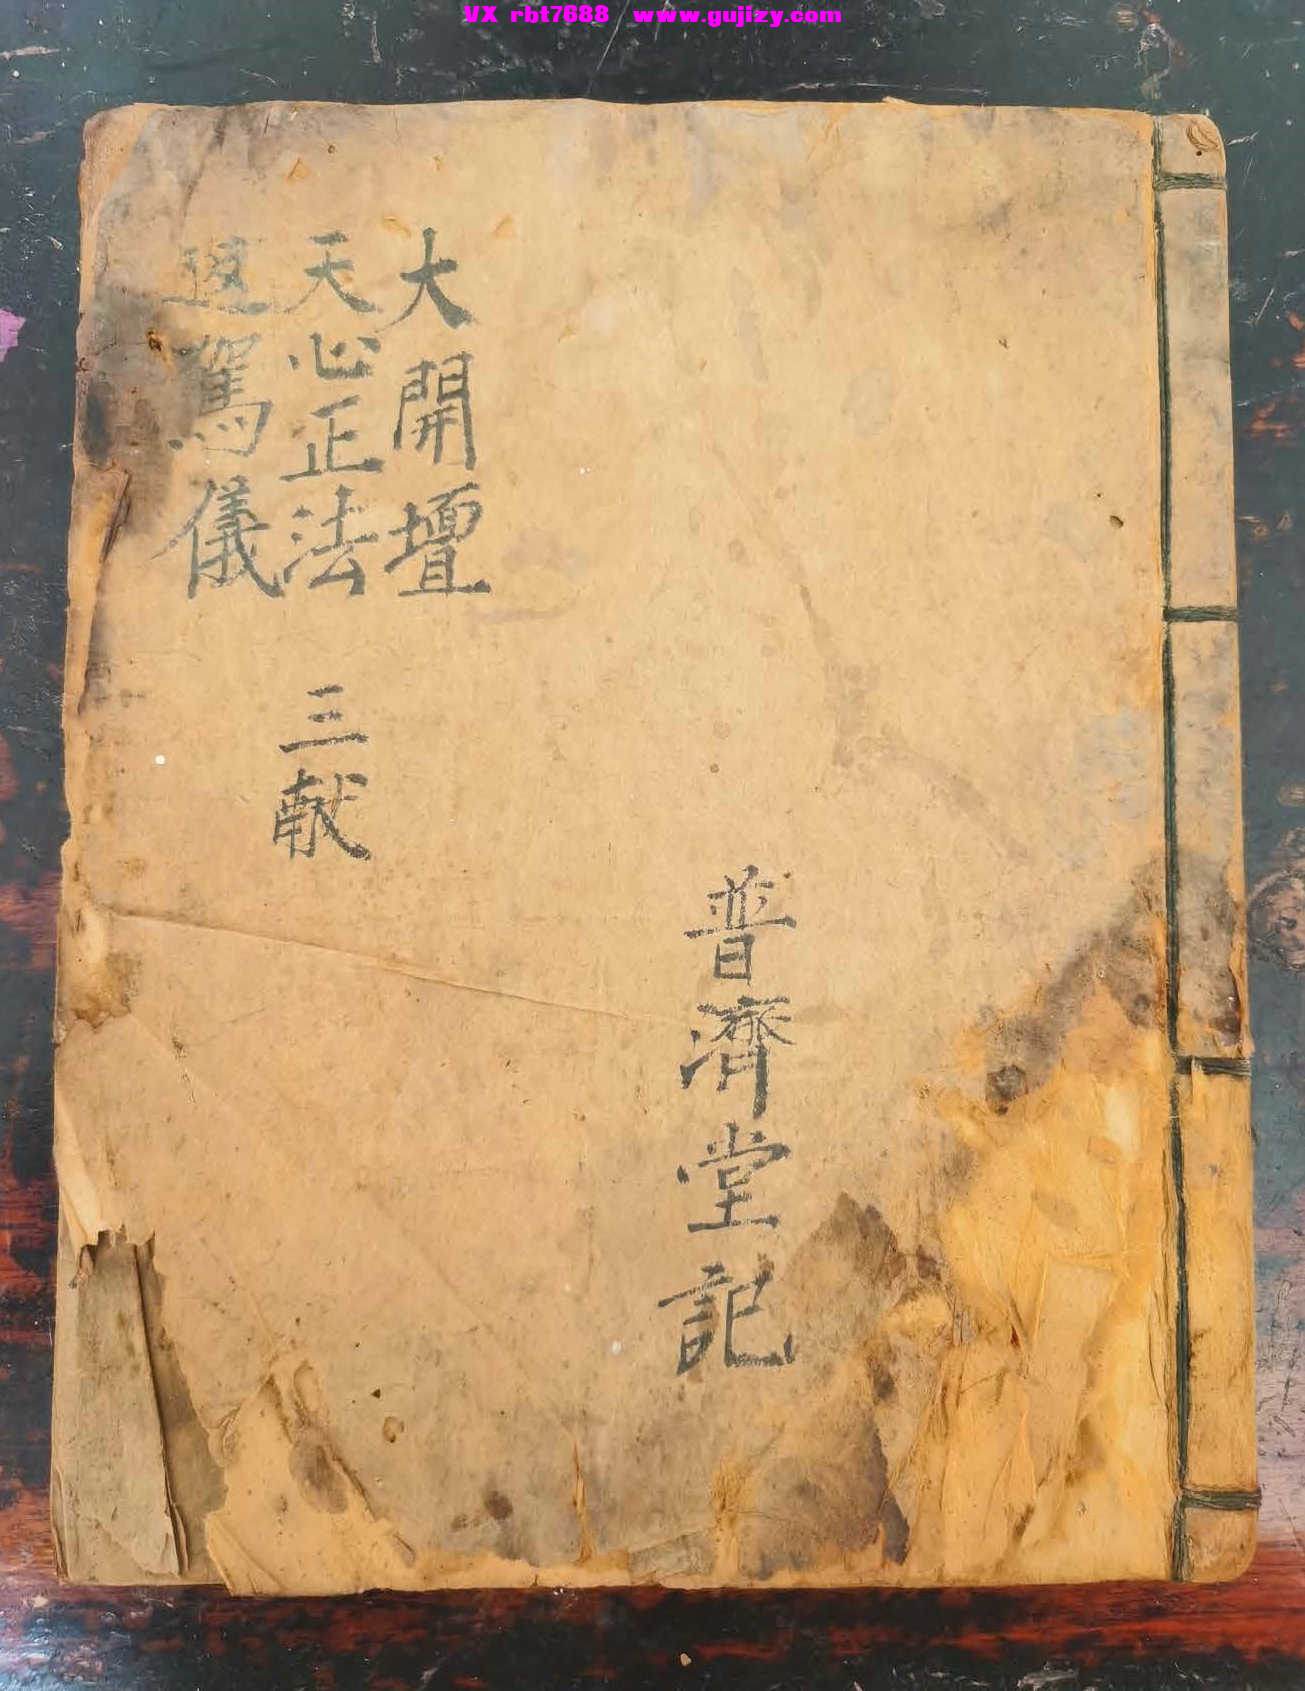 VX rbt7688 www.gujizy.com
大開壇
天心正法 三献
駕儀
普濟堂記